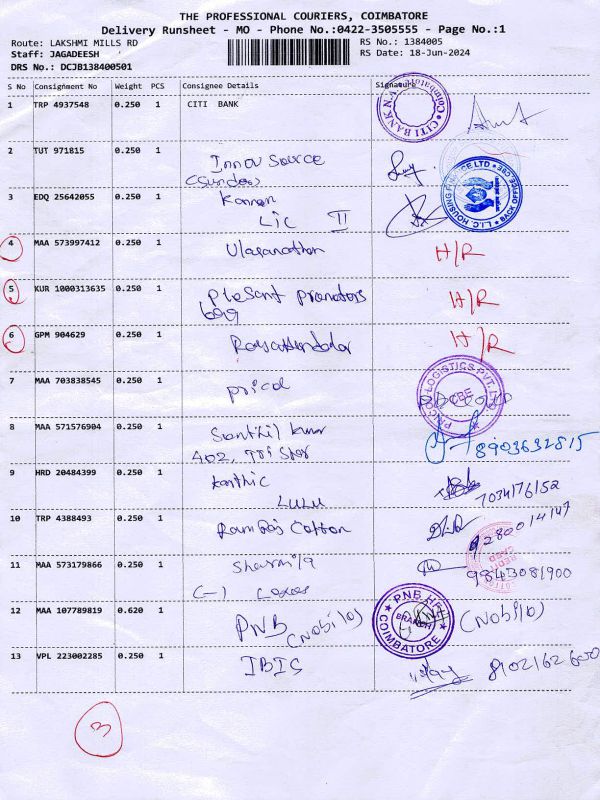 THE PROFESSIONAL COURIERS, COIMBATORE
Delivery Runsheet - MO - Phone No.:0422-3505555 - Page No.:1
Route: LAKSHMI MILLS RD
RS No.: 1384005
Staff: JAGADEESH
RS Date: 18-Jun-2024
DRS No.: DCJB138400501
S No Consignment No Weight PCS Consignee Details Signature
1 TRP 4937548 0.250 1 CITI BANK
CITI BANK N.A. Coimbatore
2 TUT 971815 0.250 1 Innov Source
(Sundar)
3 EDQ 25642055 0.250 1 Kannan
LIC II
L.I.C. HOUSING FINANCE LTD BACK OFFICE CBE
4 MAA 573997412 0.250 1 H/R
5 KUR 1000313635 0.250 1 Plesant Promotors H/R
6 GPM 904629 0.250 1 H/R
7 MAA 703838545 0.250 1 pricol
PRICOL LOGISTICS PVT. LTD CBE
8 MAA 571576904 0.250 1 Senthil kumar 8903632815
402, Tri Star
9 HRD 20484399 0.250 1 Karthic
LULU 7034176152
10 TRP 4388493 0.250 1 Ramraj Cotton 9280014147
11 MAA 573179866 0.250 1 Sharmila 9843081900
12 MAA 107789819 0.620 1 PNB (Nobilo) (Nobilo)
PNB HFL BRANCH COIMBATORE
13 VPL 223002285 0.250 1 IBIS 8102162600
3